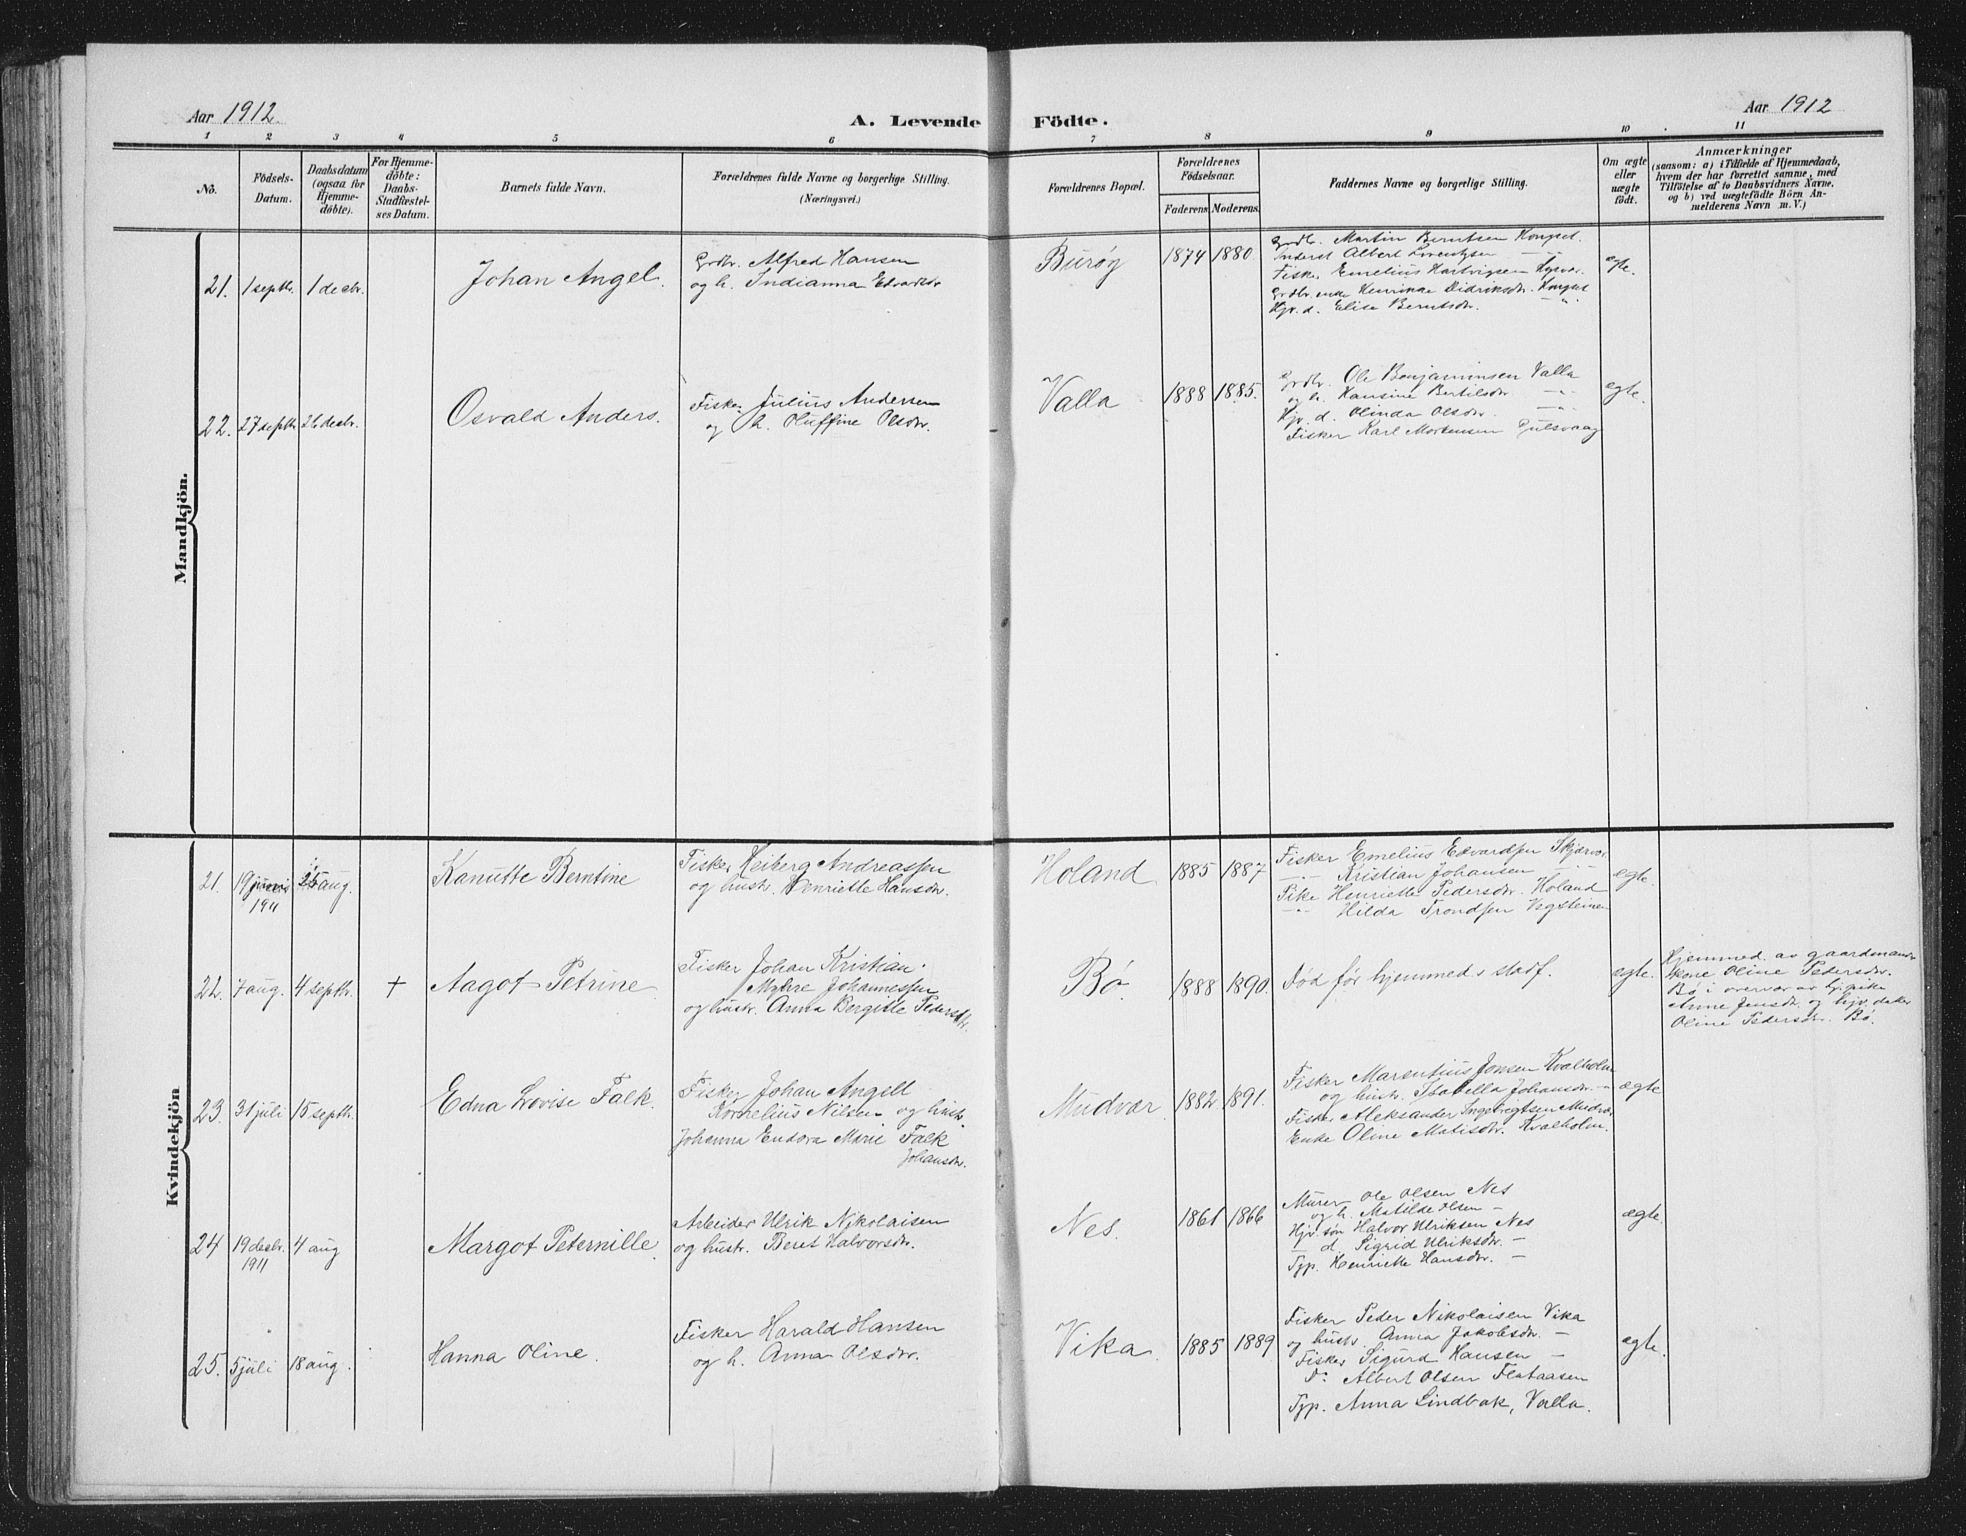 Aar 1912.
A. Levende Födte.
Aar 1912
1 2 3 4 5 6 7 8 9 10 11
No.
Födsels-
Datum.
Daabsdatum
(ogsaa for
Hjemme-
döbte).
For Hjemme-
döbte:
Daabs-
Stadfæstel-
ses Datum.
Barnets fulde Navn.
Forældrenes fulde Navne og borgerlige Stilling.
(Næringsvei.)
Forældrenes Bopæl.
Forældrenes
Födselsaar.
Faderens Moderens
Faddernes Navne og borgerlige Stilling.
Om ægte
eller
uægte
födt.
Anmærkninger
(saasom: a) i Tilfælde af Hjemmedaab,
hvem der har forrettet samme, med
Tilföielse af to Daabsvidners Navne,
og b) ved uægtefödte Börn An-
melderens Navn m. V.)
Mandkjön.
21. 1 septbr. 1 decbr.
Johan Angel.
Grdbr. Alfred Hansen
og h. Indianna Edvardsdr
Burøy
1874 1880
Grdbr. Martin Berntsen Kongset.
Inderst Albert Lorentzen - -
Fisker Emelius Hartvigsen
Grdbr. enke Henrikke Didriksdr. Kongset
Hjv. d. Elise Berntsdr. - " -
egte.
22. 27 septbr. 26 decbr.
Osvald Anders.
Fisker Julius Andersen
og h. Oluffine Olsdtr.
Valla
1888 1885.
Grdbr. Ole Benjaminsen Valla
og h. Hansine Bertilsdr - -
Hjv. d. Olinda Olsdr. - -
Fisker Karl Mortensen Gulsvaag
egte.
Kvindekjön
21. 19 juni 25 aug.
1911
Kanutte Berntine
Fisker Heiberg Andreassen
og hustr. Henriette Hansdr.
Holand
1885 1887
Fisker Emelius Edvardsen Skjærvær
- " - Kristian Johansen
Pike Henriette Pedersdr. Holand
- " - Hilda Trondsen Vegsteinen
ægte.
22. 7 aug. 4 septbr. +
Aagot Petrine
Fisker Johan Kristian
Myhre Johannessen
og hustr. Anna Bergitte Pedersdtr.
Bø.
1888 1890.
Død før hjemmed.s stadf.
egte.
Hjemmed. av gaardmands
kone Oline Pedersdr.
Bø i overvær av hj. pike
Anne Jensdr. og hjv. datter
Oline Pedersdr. Bø.
23. 31 juli 15 septbr.
Edna Lovise Falk.
Fisker Johan Angell
Kornelius Nilsen og hustr.
Johanna Endora Marie Falk
Johansdr.
Mudvær
1882 1891.
Fisker Marentius Jonsen Kvalholm
og hustr. Isabella Johansdr. -
Fisker Aleksander Ingebregtsen Mudvær
Enke Oline Matisdr. Kvalholm.
ægte
24 19 decbr. 4 aug
1911
Margot Peternille
Arbeider Ulrik Nikolaisen
og hustr. Beret Halvorsdr.
Nes.
1861 1866
Murer Ole Olsen Nes
og h. Matilde Olsen -
Hjv. søn Halvor Ulriksen Nes
- d. Sigrid Ulriksdr. -
Tjp. Henriette Hansdr. -
ægte.
25. 5 juli 18 aug.
Hanna Oline.
Fisker Harald Hansen
og h. Anna Olsdr.
Vika.
1885 1889
Fisker Peder Nikolaisen Vika
og hustr. Anna Jakobsdr. -
Fisker Sigurd Hansen -
Do Albert Olsen Flataasen
Tjp. Anna Lindbak, Valla.
egte.